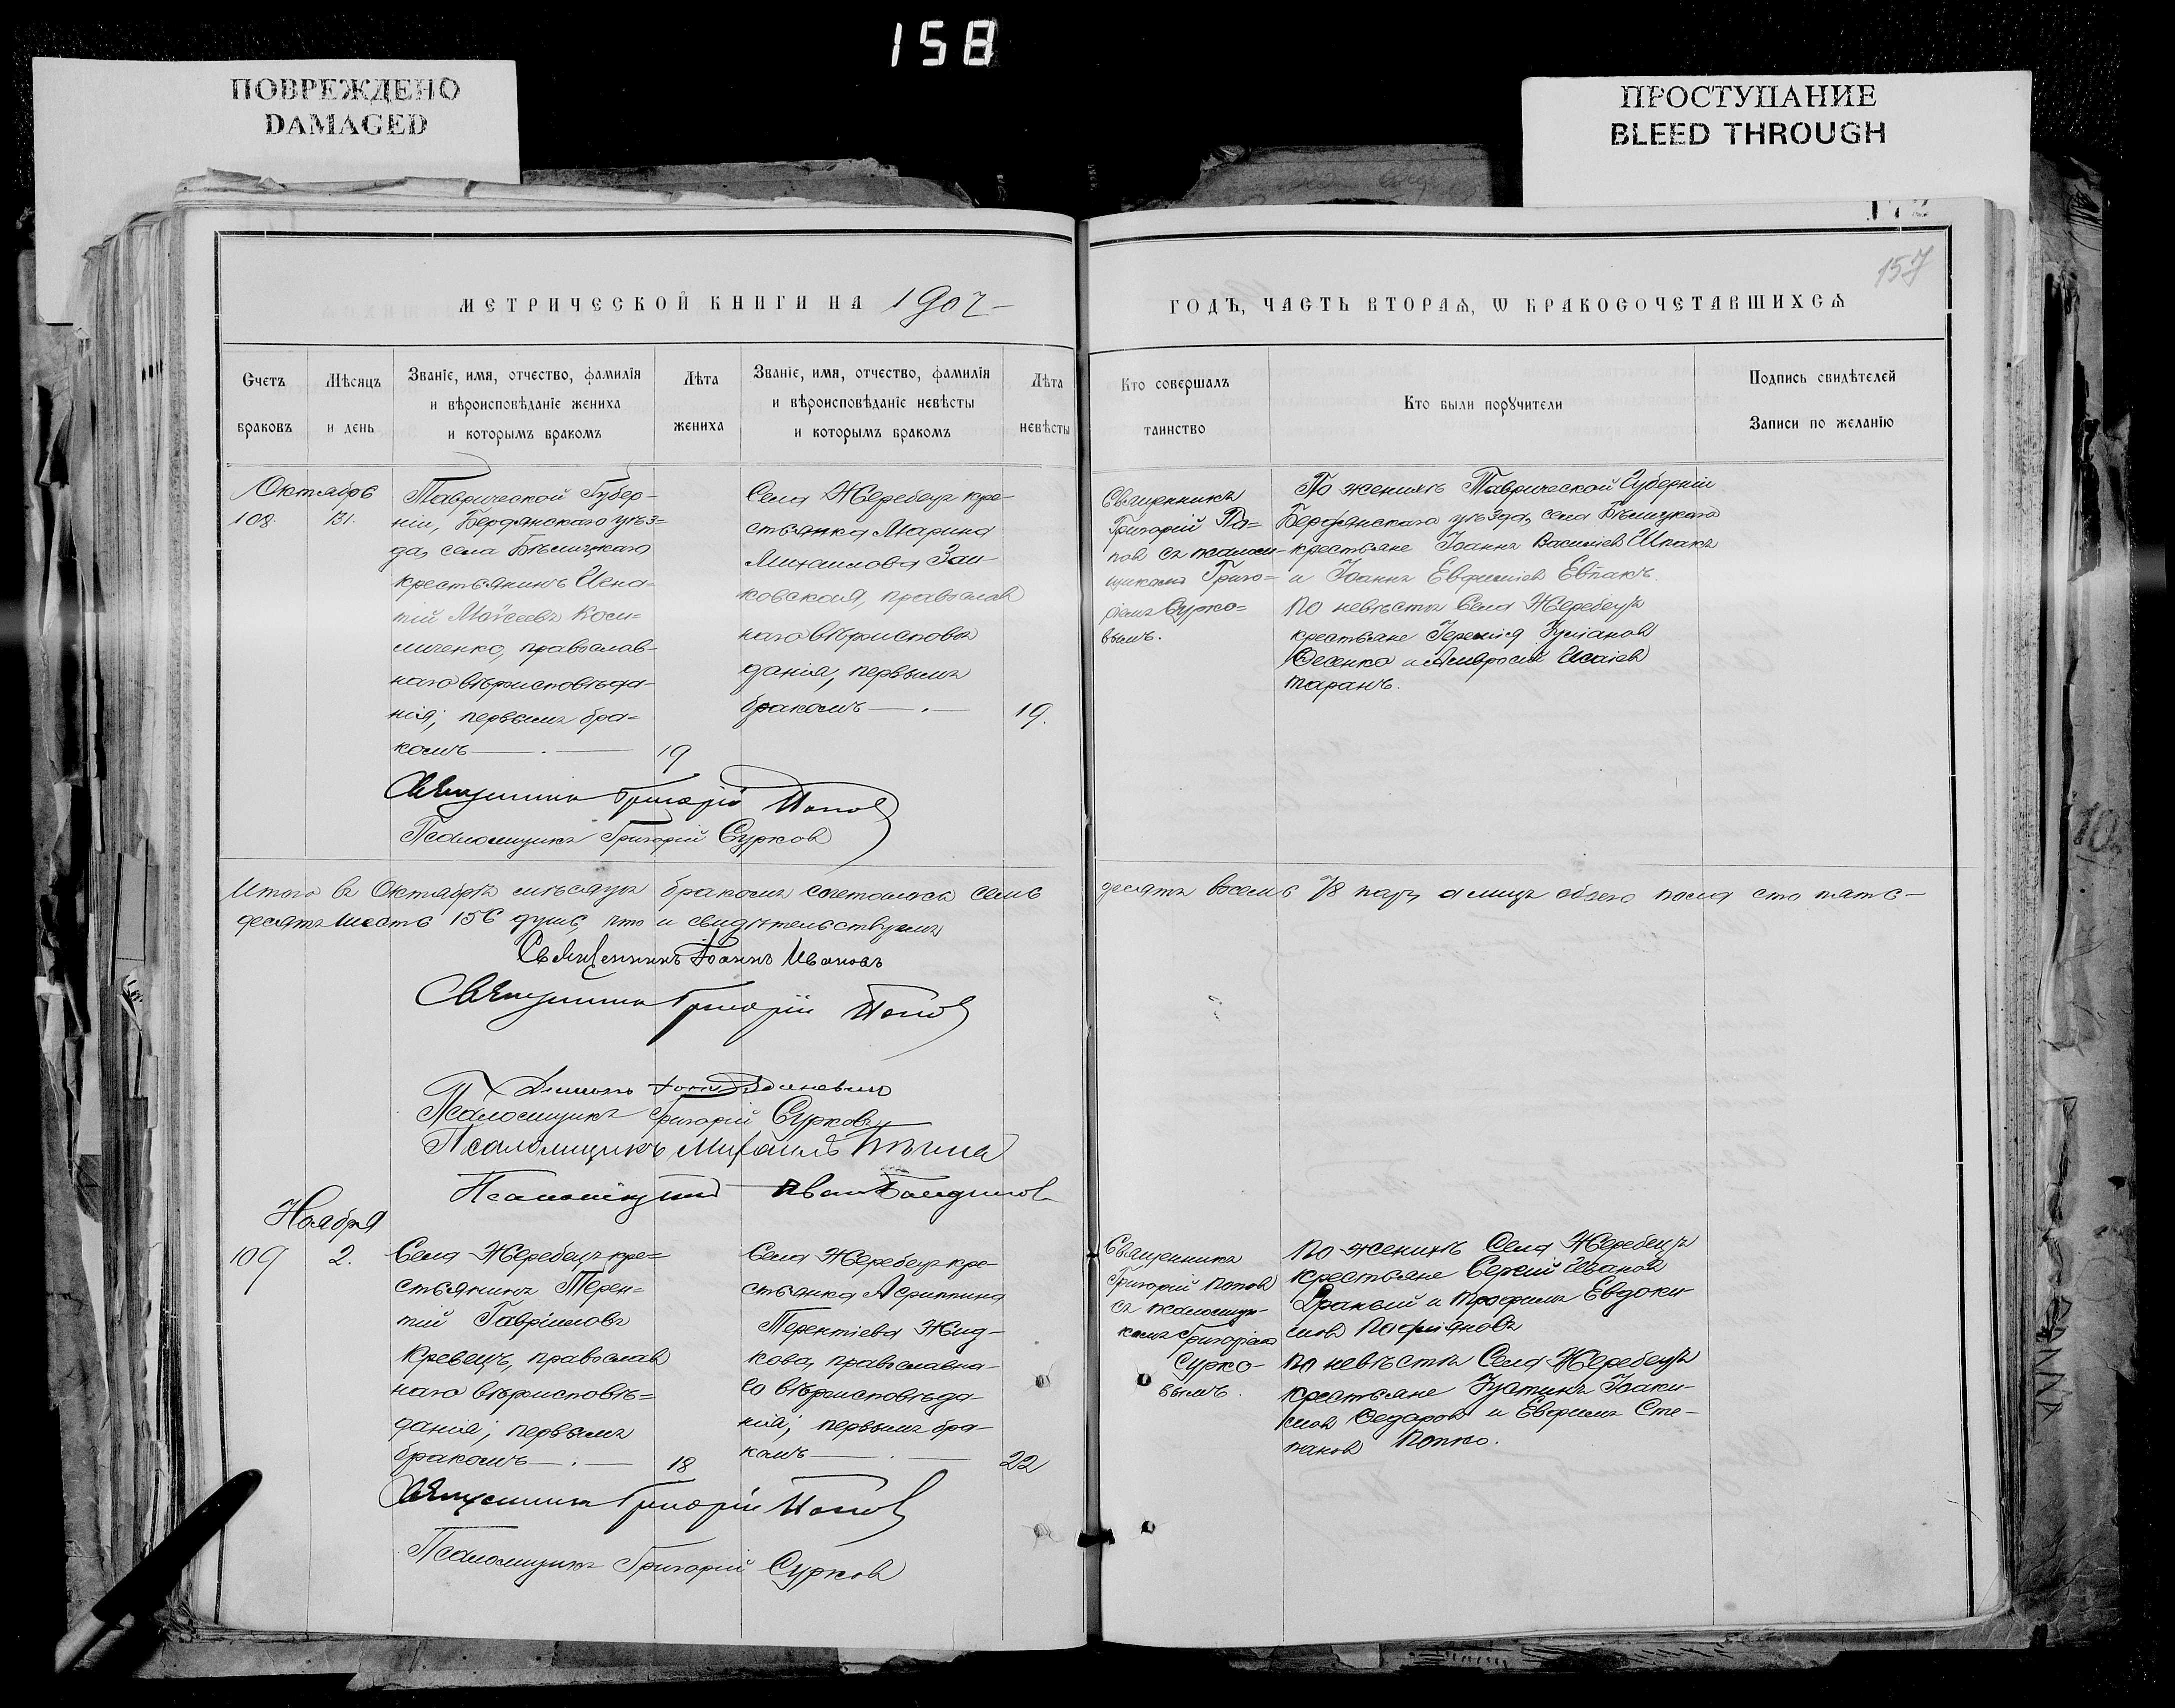 158
ПОВРЕЖДЕНО
DAMAGED
ПРОСТУПАНИЕ
BLEED THROUGH
157
МЕТРИЧЕСКОЙ КНИГИ НА 1907
ГОДЪ, ЧАСТЬ ВТОРАѦ, Ѡ БРАКОСОЧЕТАВШИХСѦ
Счетъ браковъ
Мѣсяцъ и день
Званіе, имя, отчество, фамилія
и вѣроисповѣданіе жениха
и которымъ бракомъ
Лѣта жениха
Званіе, имя, отчество, фамилія
и вѣроисповѣданіе невѣсты
и которымъ бракомъ
Лѣта невѣсты
Кто совершалъ
таинство
Кто были порꙋчители
Подпись свидѣтелей
Записи по желанію
Октябрь
108. 31.
Таврической Губер-
ніи, Бердянскаго уѣз=
да, села Бѣлицкаго
крестьянинъ Игна=
тій Моѵсеевъ Кос
миченко, православ-
наго вѣроисповѣда-
нія; первымъ бра=
комъ 19
Села Жеребецъ кре-
стьянка Марина
Михаилова
ковская, православ
наго вѣроисповѣ
данія, первымъ
бракомъ 19.
Священникъ
Григорій По=
повъ съ псаломщи-
щикомъ Григо=
ріемъ Сурко=
вымъ.
По женихѣ Таврической Губерніи
Бердянскаго уѣзда, села Бѣлицкаго
крестьяне Іоаннъ Василіевъ Шпакъ
и Іоаннъ Евфиміевъ Евпакъ.
По невѣстѣ Села Жеребецъ
крестьяне Іеремія
Ѳесенко и Амвросій Исаіевъ
Таранъ.
Священникъ Григорій Поповъ
Псаломщикъ Григорій Сурковъ
Итого въ Октябрѣ мѣсяцѣ бракомъ сочеталось семь
десятъ восемь 78 паръ, а лицъ обоего пола сто пять-
десятъ шесть 156 душъ, что и свидѣтельствуемъ
Священникъ Іоаннъ Ивановъ
Священникъ Григорій Поповъ
Псаломщикъ Григорій Сурковъ
Псаломщикъ Михаилъ
Псаломщикъ Иванъ
Ноября
109 2.
Села Жеребецъ кре=
стьянинъ Терен=
тій Гавріиловъ
Кревецъ, православ
наго вѣроисповѣ=
данія; первымъ
бракомъ 18
Села Жеребецъ кре-
стьянка Агриппина
Терентіева Жид-
кова, православна-
го вѣроисповѣда-
нія; первымъ бра-
комъ 22
Священникъ
Григорій Поповъ
съ псаломщи-
комъ Григоріемъ
Сурко-
вымъ.
По женихѣ Села Жеребецъ
крестьяне Сергій Ивановъ
и Трофимъ Евдоки-
мовъ
По невѣстѣ Села Жеребецъ
крестьяне Іустинъ Іоаки-
мовъ Ѳедоровъ и Евфимъ Сте-
пановъ Попко.
Священникъ Григорій Поповъ
Псаломщикъ Григорій Сурковъ